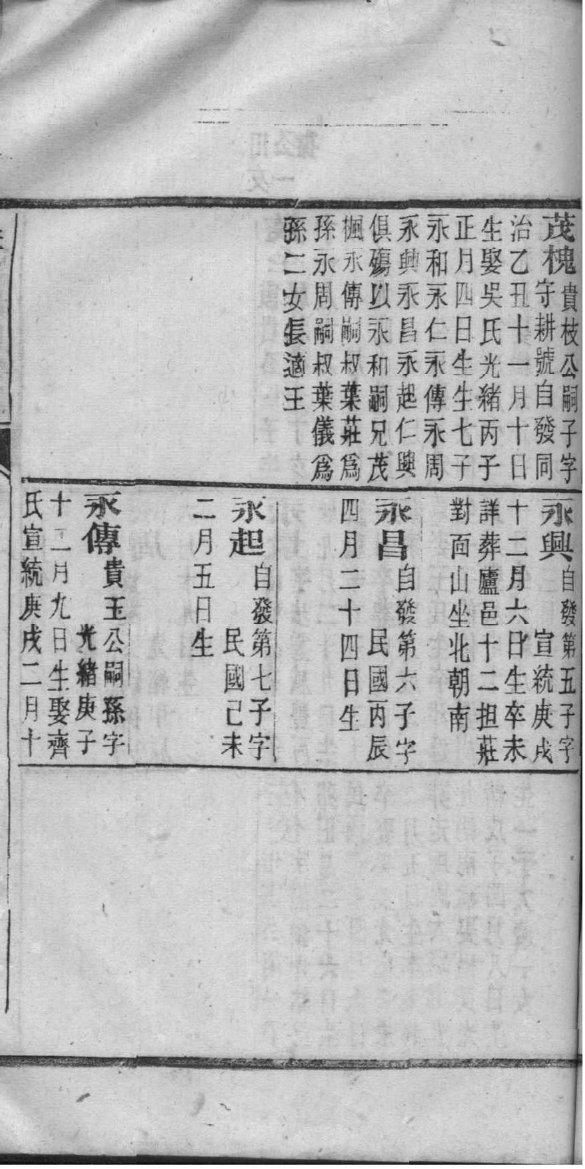 茂槐貴枝公嗣子字
守耕號自發同
治乙丑十一月十日
生娶吳氏光緒丙子
正月四日生生七子
永和永仁永傳永周
永興永昌永起仁興
俱殤以永和嗣兄茂
楓永傳嗣叔葉莊為
孫永周嗣叔葉儀為
孫二女長適王
永興自發第五子字
宣統庚戌
十二月六日生卒未
詳葬廬邑十二担莊
對面山坐北朝南
永昌自發第六子字
民國丙辰
四月二十四日生
永起自發第七子字
民國己未
二月五日生
永傳貴玉公嗣孫字
光緒庚子
十二月九日生娶齊
氏宣統庚戌二月十